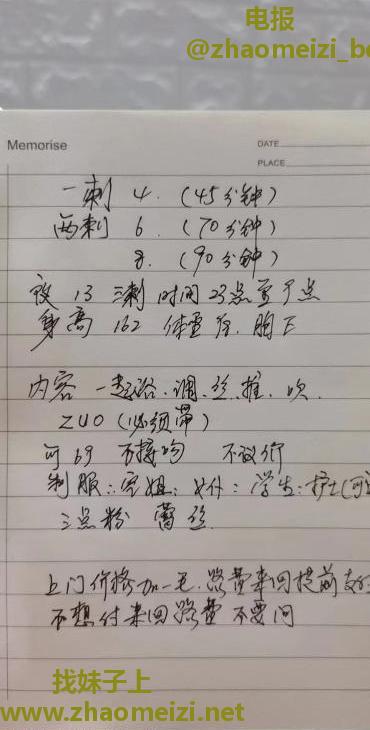 电报
@zhaomeizi_b
Memorise
DATE
PLACE
一刺 4. (45分钟)
两刺 6. (70分钟)
8. (90分钟)
夜 13 三刺 时间 23点至7点
身高 162 体重 胸 E
内容 一起浴.调.丝.推.吹.
ZUO (必须带)
可69 不接吻 不议价
制服:空姐:女仆:学生:护士(可
三点粉 蕾丝
上门价格加一毛.路费来回提前支付
不想付来回路费 不要问
找妹子上
www.zhaomeizi.net